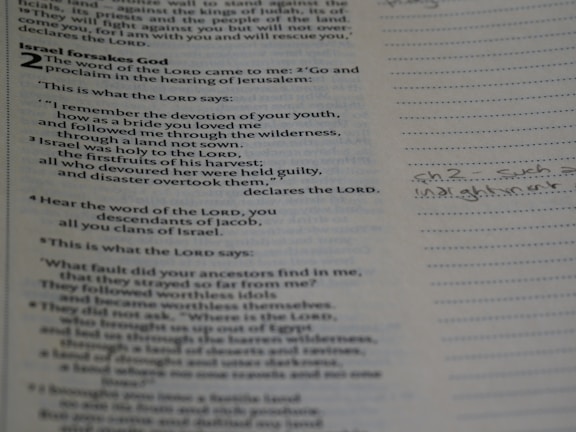 bronze wall to stand against the
land – against the kings of Judah, its of-
ficials, its priests and the people of the land.
19 They will fight against you but will not over-
come you, for I am with you and will rescue you,’
declares the LORD.
Israel forsakes God
2 The word of the LORD came to me: 2 ‘Go and
proclaim in the hearing of Jerusalem:
‘This is what the LORD says:
‘“I remember the devotion of your youth,
how as a bride you loved me
and followed me through the wilderness,
through a land not sown.
3 Israel was holy to the LORD,
the firstfruits of his harvest;
all who devoured her were held guilty,
and disaster overtook them,”’
declares the LORD.
4 Hear the word of the LORD, you
descendants of Jacob,
all you clans of Israel.
5 This is what the LORD says:
‘What fault did your ancestors find in me,
that they strayed so far from me?
They followed worthless idols
and became worthless themselves.
6 They did not ask, “Where is the LORD,
who brought us up out of Egypt
and led us through the barren wilderness,
through a land of deserts and ravines,
a land of drought and utter darkness,
a land where no one travels and no one
lives?”
7 I brought you into a fertile land
to eat its fruit and rich produce.
But you came and defiled my land
ch 2 - such a